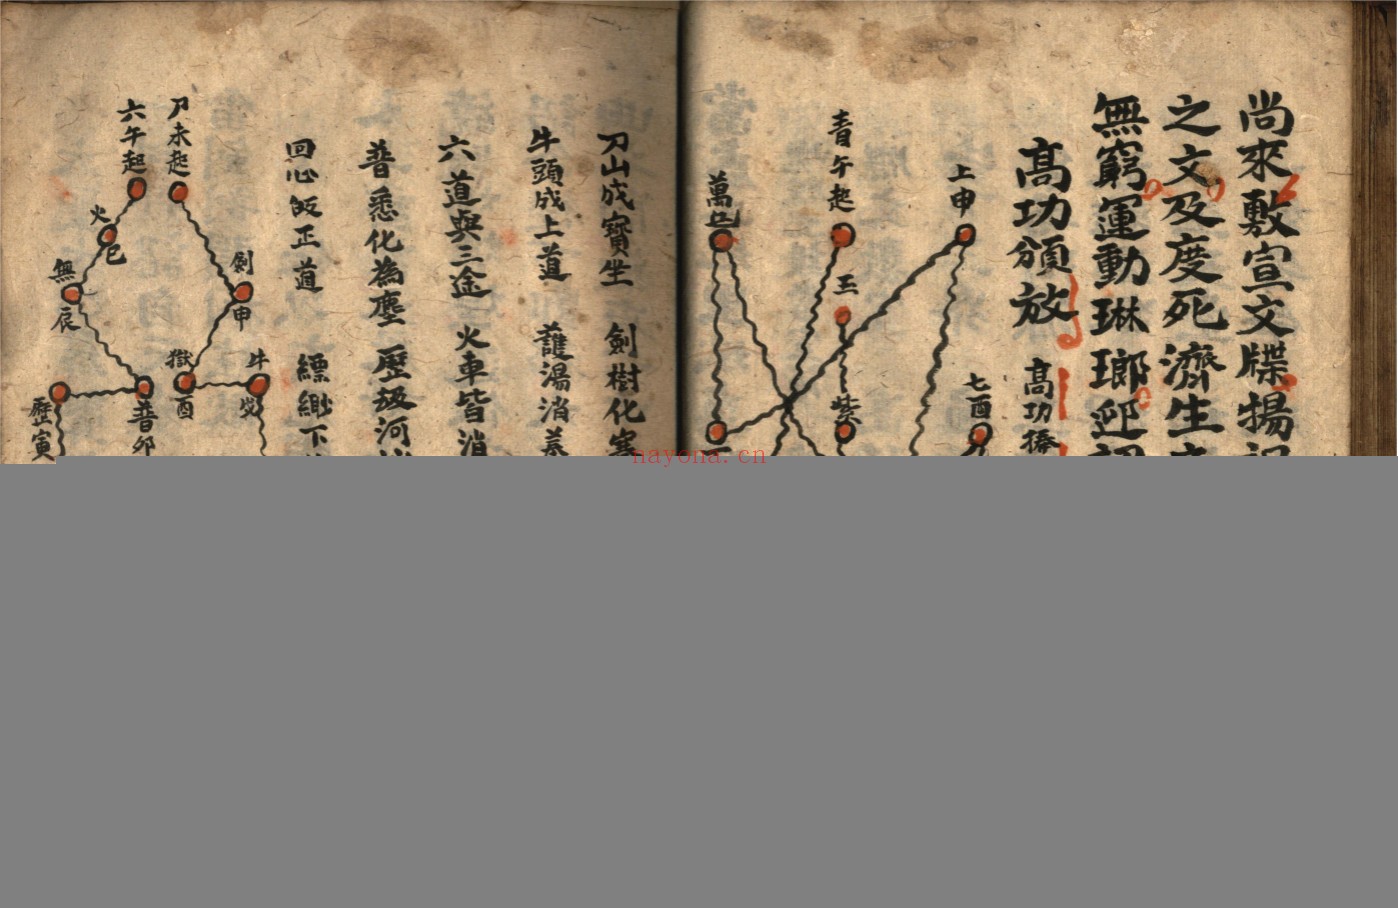 尚來敷宣文牒揚
之文及度死濟生
無窮運動琳瑯迎
高功頒放 高功捧
上申
七酉
青午起
玉
紫
萬
刀山成寶坐 劍樹化
牛頭成上道 護湯消
六道與三途 火車皆消
普悉化為塵 歷級河
回心皈正道 縹緲下
劍申
牛
獄酉
未起
六午起
火巳
無辰
普卯
歷寅
nayona.cn